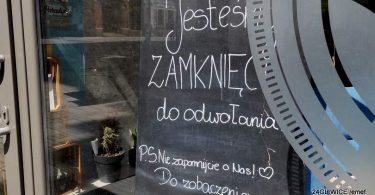 Jesteśmy
ZAMKNIĘCI
do odwołania
P.S Nie zapomnijcie o Nas! ♡
Do zobaczenia
24GLIWICE /emef